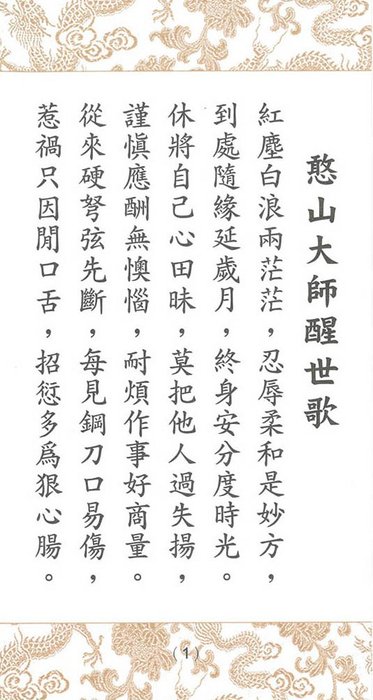 憨山大師醒世歌
紅塵白浪兩茫茫，忍辱柔和是妙方，
到處隨緣延歲月，終身安分度時光。
休將自己心田昧，莫把他人過失揚，
謹慎應酬無懊惱，耐煩作事好商量。
從來硬弩弦先斷，每見鋼刀口易傷，
惹禍只因閒口舌，招愆多為狠心腸。
（1）